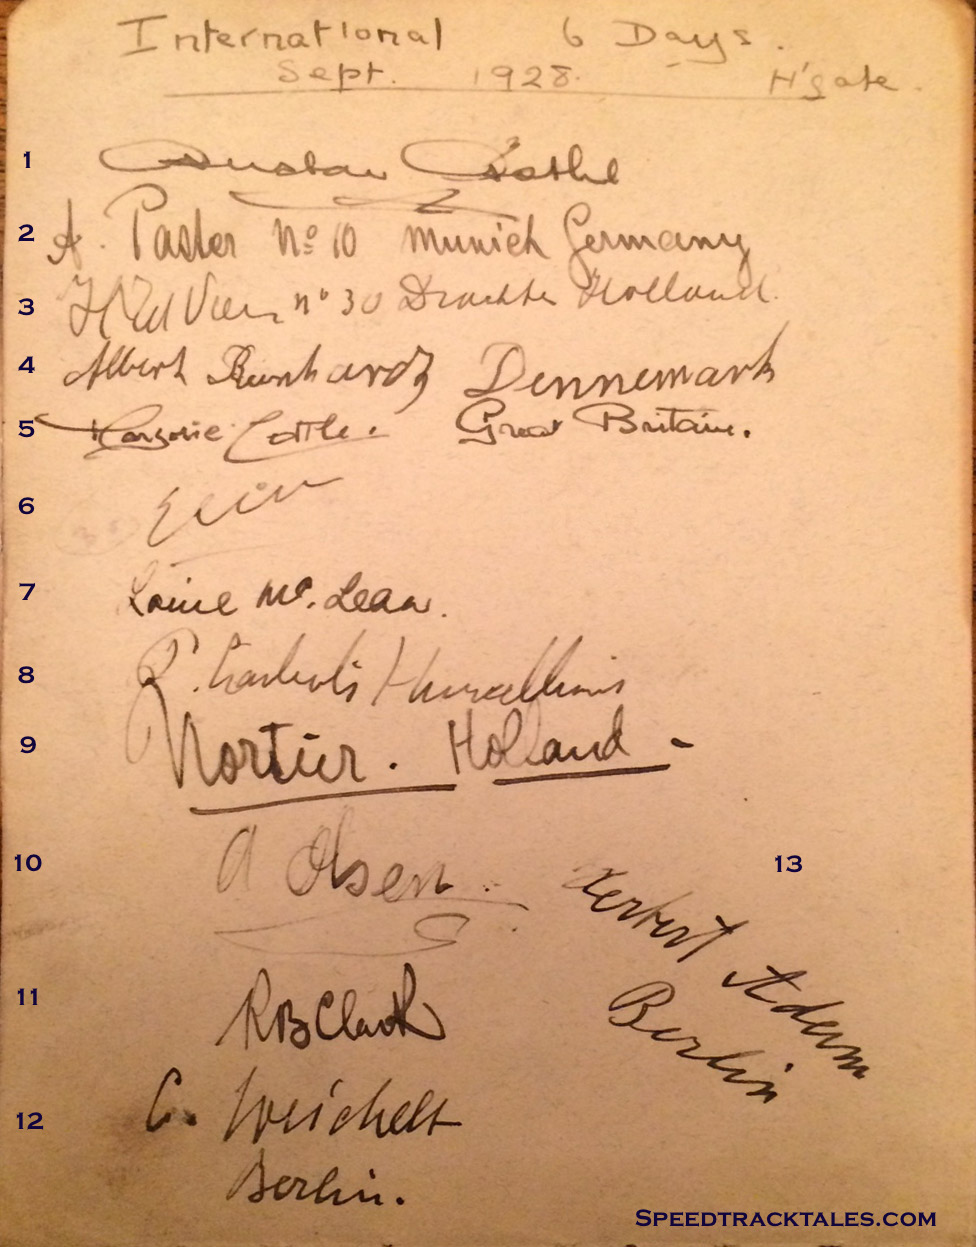 International 6 Days.
Sept. 1928. H'gate.
1 Gustav
2 A. Paster No 10 Munich Germany
3 no 30 Holland
4 Albert Dennemark
5 Marjorie Cottle. Great Britain.
6
7 Louie Mc. Lean.
8
9 Nortier. Holland -
10 A Olsen
13 Herbert Adam
Berlin
11 RB Clark
12 C. Weichelt
Berlin.
SPEEDTRACKTALES.COM